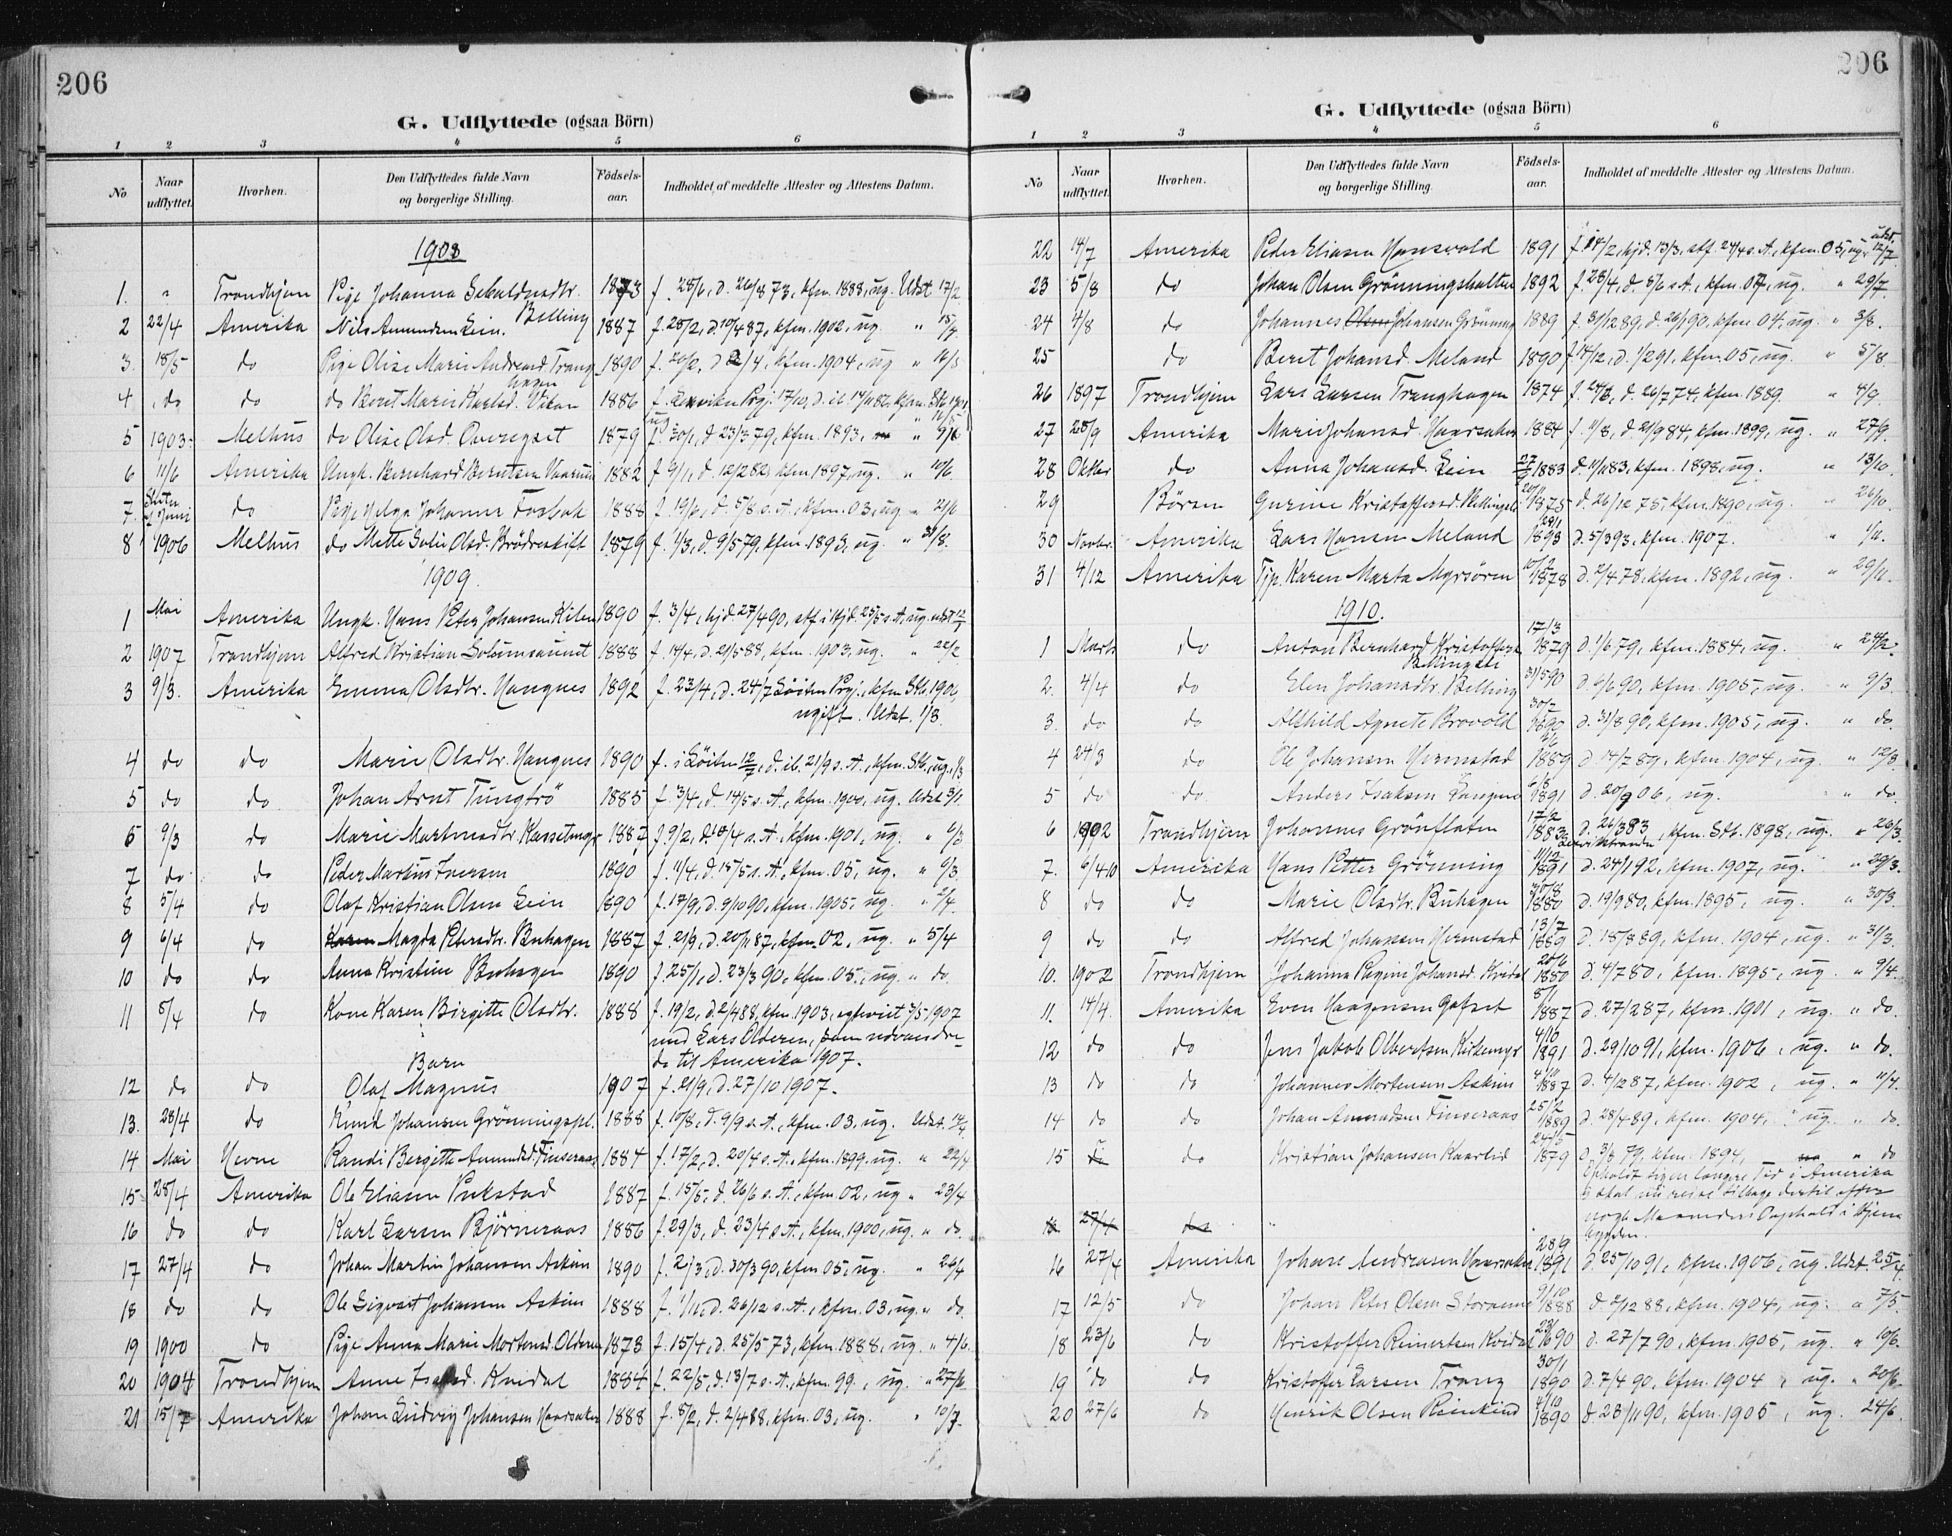 206
G. Udflyttede (ogsaa Börn)
1 2 3 4 5 6
No. Naar udflyttet. Hvorhen. Den Udflyttedes fulde Navn og borgerlige Stilling. Födsels-aar. Indholdet af meddelte Attester og Attestens Datum.
1908
1. " Trondhjem Pige Johanna Sebaldusdtr. Belling 1873 f. 28/6, d. 26/8 73, kfm. 1888, ug. Udst. 17/2
2 22/4 Amerika Nils Amundsen Lein. 1887 f. 28/2, d. 10/4 87, kfm. 1902, ug. "
3. 18/5 do Pige Olise Marie Andreasd. Trang 1890 kfm. 1904, ug "
4 do do do Beret Marie Karlsd. 1886
5 1903 Melhus do Olise Olsd. Överegset 1879 f. 30/1, d. 23/3 79, kfm. 1893,
6 11/6 Amerika Ungk. Bernhard Berntsen 1882 f. 9/1, d. 12/2 82, kfm. 1897, ug. " 10/6.
7. Juni do Pige Helga Johanna Fosbak 1888 f. 19/6, d. 5/8 s. A., kfm. 03, ug "
8 1906 Melhus do Mette Solie Olsd. Brödreskift 1879 f. 1/3, d. 9/5 79, kfm. 1893, ug. " 31/8.
1909.
1 Mai Amerika Ungk. Hans Peter Johansen Kilen 1890 f. 3/4, hjd. 27/4 90,
2 1907 Trondhjem Alfred Kristian Solumsaunet 1888 f. 14/4, d. 21/5 88, kfm. 1903, ug. " 22/2
3 9/3. Amerika Emma Olsdtr. Hangnes 1892 f. 23/4, d. 24/7 Löiten Prgj., kfm. Stb. 1906,
ugift. Udst. 1/3.
4 do do Marie Olsdtr. Hangnes 1890 f. i Löiten 12/7, d. ib. 21/9 s. A., kfm. Stb., ug. 1/3
5 do do Johan Arnt Tungtrö 1885 f. 3/4, d. 14/5 s. A., kfm. 1900, ug. Udst. 3/1.
6 9/3 do Marie Martinusdtr. Kassetmyr 1887 f. 9/2, d. 18/4 s. A., kfm. 1901, ug. " 6/3
7 do do Peder Martinus Iversen 1890 f. 11/4, d. 15/5 s. A., kfm. 05, ug. " 6/3.
8 5/4 do Olaf Kristian Olsen Lein 1890 f. 17/9, d. 9/10 90, kfm. 1905, ug. " 2/4.
9 6/4 do Karen Magda Petersdtr. Buhagen 1887 f. 21/9, d. 20/11 87, kfm. 02, ug. " 5/4
10 do do Anna Kristine Buhagen 1890 f. 25/1, d. 23/3 90, kfm. 05, ug. " do.
11 8/4 do Kone Karen Birgitte Olsdtr. 1888 f. 19/2, d. 2/4 88, kfm. 1903, egteviet 3/5 1907
med Lars Olderen, som udvandre-
Barn de til Amerika 1907.
12 do do Olaf Magnus 1907 f. 21/9, d. 27/10 1907.
13. 28/4 do Knud Johansen Grönningspl. 1888 f. 10/8, d. 9/9 s. A., kfm. 03, ug. Udst.
14 Mai Hevne Randi Bergitte Amundsd. Finseraas 1884 f. 17/2, d. 20/4 s. A., kfm. 1899, ug. " 22/4
15 28/4 Amerika Ole Eliasen Pukstad 1887 f. 15/5, d. 26/6 s. A., kfm. 02, ug " 23/4
16 do do Karl Larsen Björneraas 1886 f. 29/3, d. 23/4 s. A., kfm. 1900, ug. " do.
17 27/4 do Johan Martin Johansen Askim 1890 f. 2/3, d. 30/3 90, kfm. 05, ug. " 26/4
18 do do Ole Sigvart Johansen Askim 1888 f. 1/11, d. 26/12 s. A., kfm. 03, ug. " do.
19 1900 do Pige Anna Marie Mortensd. Olderen 1873 f. 15/4, d. 25/5 73, kfm. 1888, ug. " 4/6.
20 1904 Trondhjem Anne Knudal 1884 f. 22/5, d. 13/7 s. A., kfm. 99, ug. "
21 15/7 Amerika Johan Ludvig Johansen Haarsaker 1888 f. 8/2, d. 2/4 88, kfm. 03, ug. " 10/7.
206
G. Udflyttede (ogsaa Börn)
1 2 3 4 5 6
No Naar udflyttet. Hvorhen. Den Udflyttedes fulde Navn og borgerlige Stilling. Födsels-aar. Indholdet af meddelte Attester og Attestens Datum.
22 14/7 Amerika Peder Eliasen Hansvold 1891 f. 14/2, hjd. 13/3, stf. 24/4 s. A., kfm. 05, ug. udst. 12/7.
23 5/8 do Johan Olsen Grönningshalten 1892 f. 28/4, d. 5/6 s. A., kfm. 07, ug. " 29/7.
24 4/8 do Johannes Olsen Johansen Grönning 1889 f. 31/12 89, d. 26/1 90, kfm. 04, ug. " 3/8.
25 do Beret Johansd. Meland 1890 f. 14/12, d. 1/2 91, kfm. 05, ug. " 5/8
26 1897 Trondhjem Lars Larsen Tranghagen 1874 d. 26/7 74, kfm. 1889. " 4/9.
27 28/9 Amerika Marie Johansd. Haarsaker 1884 f. 11/8, d. 21/9 84, kfm. 1899, ug. " 27/9.
28 Oktbr do Anna Johansd. Lein 1883 d. 11/11 83, kfm. 1898, ug. " 13/10.
29 Börsen Gurine Kristoffersd. 1875 d. 26/12 75, kfm. 1890, ug. " 26/10.
30 Novbr. Amerika Lars Hansen Meland 1893 d. 5/3 93, kfm. 1907. " 1/11.
31 4/12 Amerika Tjp. Karen Marta Myrsören 1878 d. 2/4 78, kfm. 1892, ug. " 29/11.
1910.
1 Marts do Anton Bernhard Kristoffersen 17/3 1879 d. 1/6 79, kfm. 1884, ug. " 24/2.
2. 4/4 do Elen Johansdtr. Belling 31/5 90 d. 6/6 90, kfm. 1905, ug. " 9/3.
3. do do Alfhild Agnete Brovold 1890 d. 31/8 90, kfm. 1905, ug. " do.
4 24/3 do Ole Johansen Hermstad 1889 d. 14/7 89, kfm. 1904, ug. " 12/3.
5 do do Anders Isaksen 6/8 1891 d. 20/9 06, ug. " do.
6 1902 Trondhjem Johannes Grönflaten 17/2 1883 d. 26/3 83, kfm. Stb. 1898, ug. " 26/3.
7. 6/4 10 Amerika Hans Petter Grönning 11/12 1891 d. 24/1 92, kfm. 1907, ug. " 29/3.
8 do do Marie Olsdtr. Buhagen 30/8 1880 d. 19/9 80, kfm. 1895, ug. " 30/3.
9 do do Alfred Johansen Hermstad 13/7 1889 d. 18/8 89, kfm. 1904, ug. " 31/3.
10. 1902 Trondhjem Johanna Regine Johansd. Kvidal 1880 d. 4/7 80, kfm. 1895, ug. " 9/4.
11. 14/4. Amerika Even Haagensen Gafset 8/1 1887 d. 27/2 87, kfm. 1901, ug. " do.
12 do do Jens Jakob Olbertsen Kirkemyr 4/10 1891 d. 29/10 91, kfm. 1906, ug. " do.
13 do do Johannes Mortensen Askim 4/10 1887 d. 4/12 87, kfm. 1902, ug. " 11/4.
14 do do Johan Amundsen Finseraas 25/2 1889 d. 28/4 89, kfm. 1904, ug. " do.
15 do do Kristian Johansen Kaarlid 24/5 1879 79, kfm. 1894, " do
Opholdt sig en længre Tid i Amerika
& skal nu reise tilbage dertil efter
nogle Maaneders Ophold i Hjem
16 27/4 do " bygden.
16 27/4 Amerika Johan Andreasen Haarsaker 28/9 1891 d. 25/10 91, kfm. 1906, ug. Udst. 25/4.
17 12/5 do Johan Peter Olsen 9/10 1888 d. 2/12 88, kfm. 1904, ug. " 7/5.
18 23/6 do Kristoffer Reinertsen Kvidal 1890 d. 27/7 90, kfm. 1905, ug. " 10/6.
19 do do Kristoffer Larsen Trang 30/1 1890 d. 7/4 90, kfm. 1904, ug. " 20/6.
20 27/6 do Henrik Olsen Reinkind 1890 d. 23/11 90, kfm. 1905, ug. 24/6.